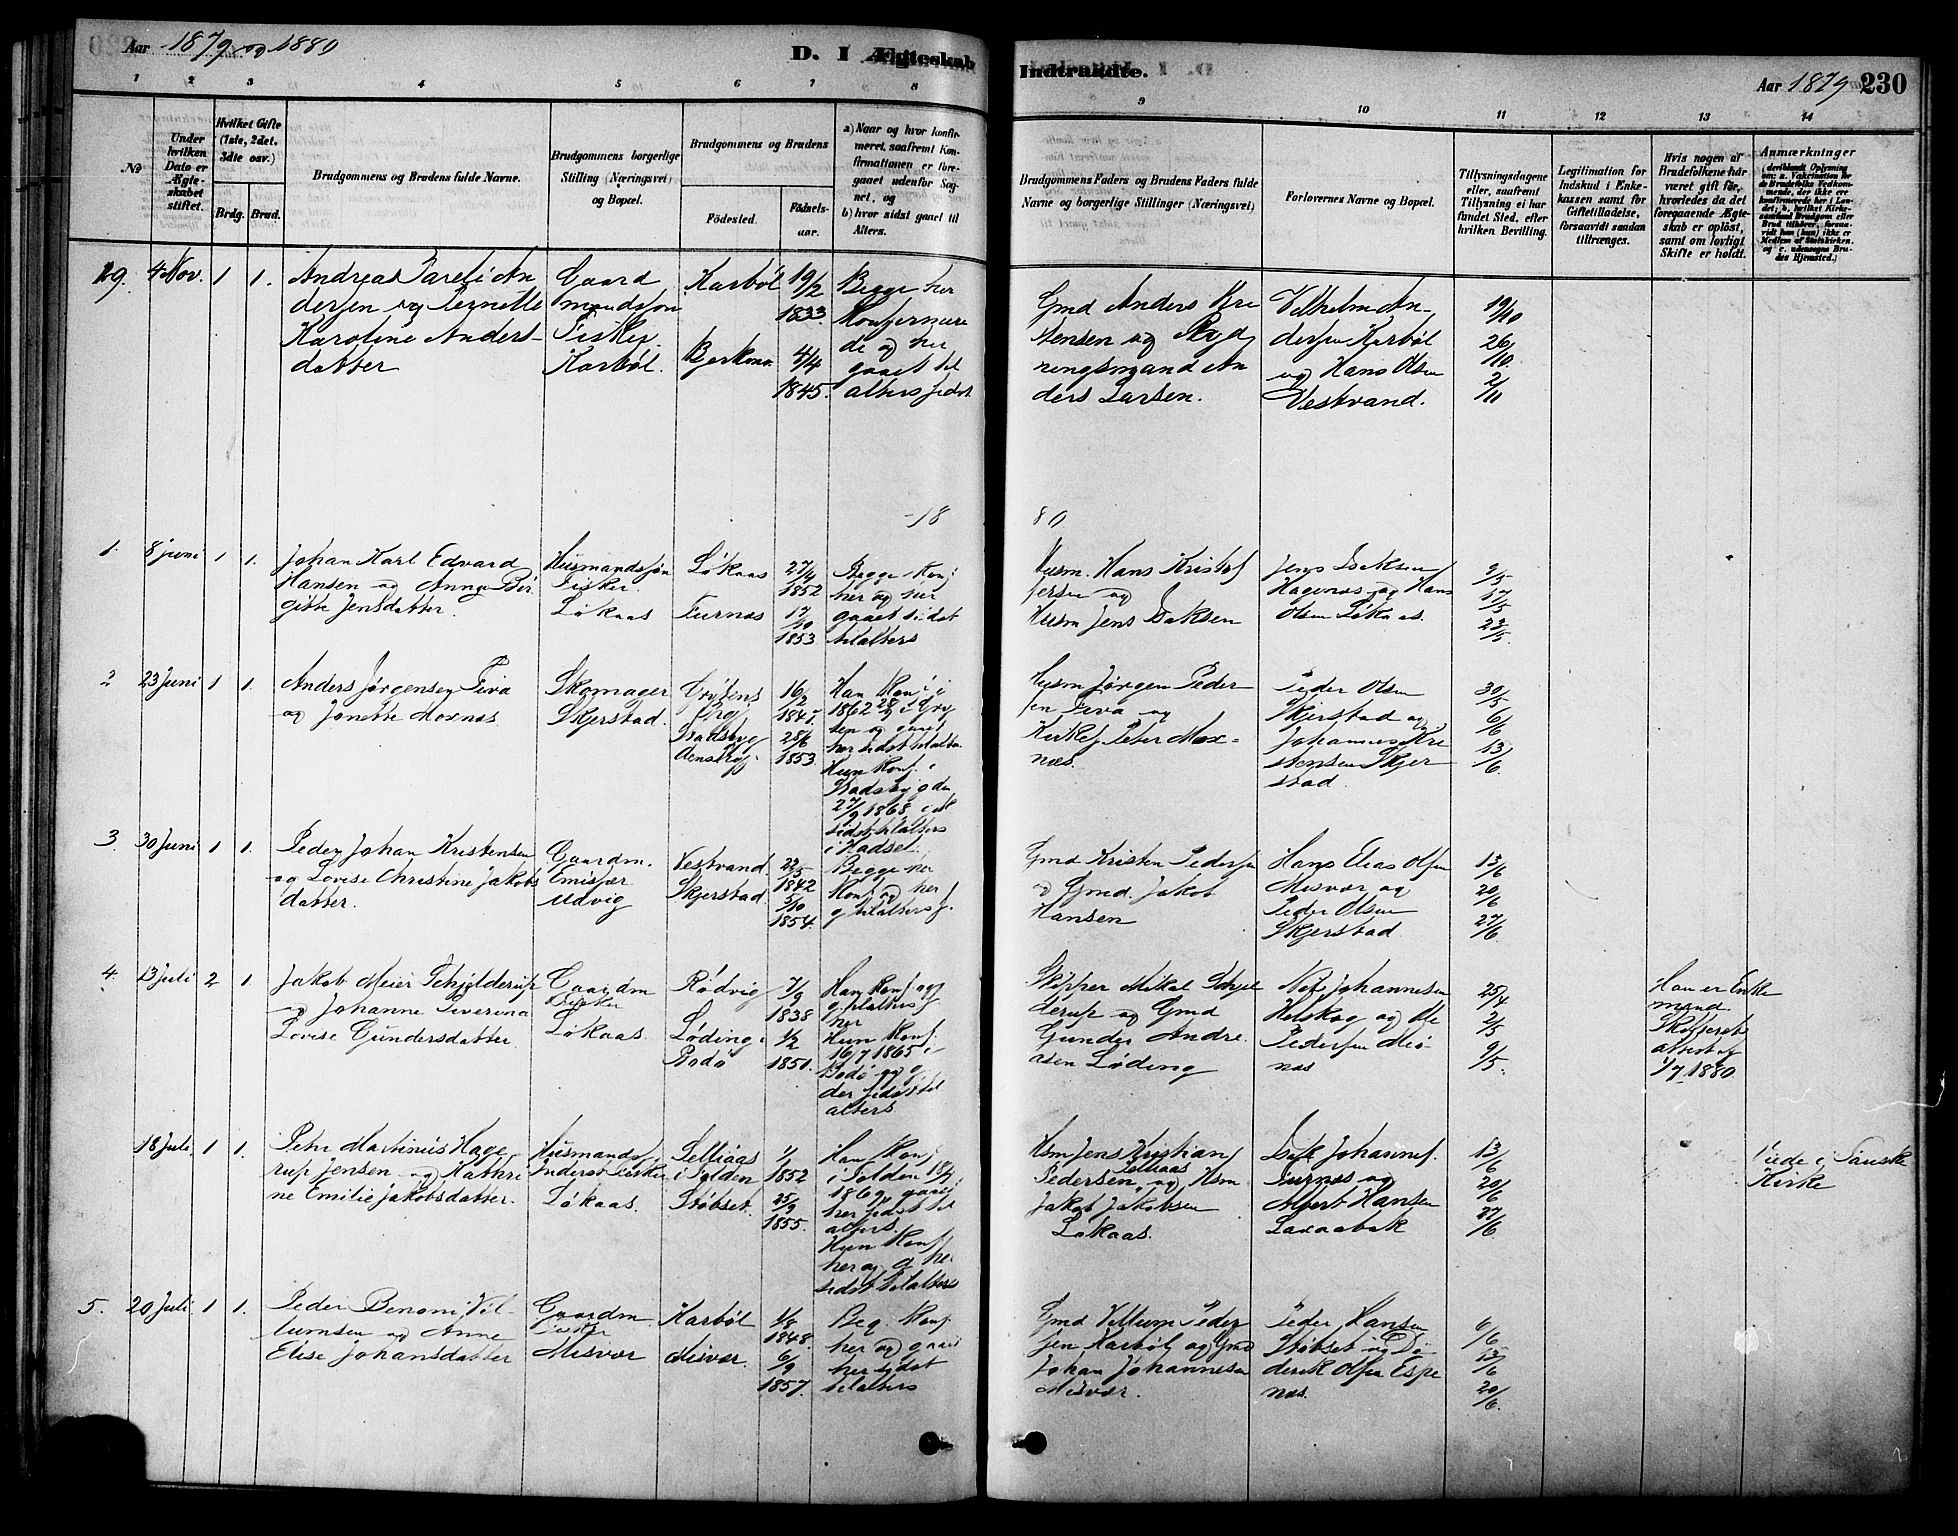 Aar 1879 og 1880
D. I Ægteskab
Indtraadte.
Aar 1879
230
1 2 3 4 5 6 7 8
9 10 11 12 13 14
№
Under hvilken Dato er Ægteskabet stiftet.
Hvilket Gifte (1ste, 2det, 3die osv.)
Brdg.
Brud.
Brudgommens og Brudens fulde Navne.
Brudgommens borgerlige Stilling (Næringsvei) og Bopæl.
Brudgommens og Brudens
Födested.
Födselsaar.
a) Naar og hvor konfirmeret, saafremt Konfirmationen er foregaaet udenfor Sognet, og
b) hvor sidst gaaet til Alters.
Brudgommens Faders og Brudens Faders fulde Navne og borgerlige Stillinger (Næringsvei)
Forlovernes Navne og Bopæl.
Tillysningsdagene eller, saafremt Tillysning ei har fundet Sted, efter hvilken Bevilling.
Legitimation for Indskud i Enkekassen samt for Giftetilladelse, forsaavidt saadan tiltrænges.
Hvis nogen af Brudefolkene har været gift för, hvorledes da det foregaaende Ægteskab er oplöst, samt om lovligt Skifte er holdt.
Anmærkninger
29. 4 Nov. 1 1.
Andreas Zareli Andersen og Pernette Karoline Andersdatter
Gaardmandssøn Fisker Karbøl.
Karbøl 19/2 1833.
Bjerkmo 4/4 1845.
Begge her Konfirmerede og her gaaet til alters sidst
Gmd Anders Kristensen og Rydningsmand Anders Larsen.
Vilhelm Andersen Karbøl og Hans Olsen Vestvand.
19/10 26/10 2/11
1880
1. 8 juni 1 1.
Johan Karl Edvard Hansen og Anna Birgitte Jensdatter.
Husmandssøn Fisker Løkaas
Løkaas 27/4 1852
Furnes 17/10 1853
Begge Konf her og her gaaet sidst til alters
Husm. Hans Kristofersen og Husm Jens Isaksen
Jens Isaksen Hagenæs og Hans Olsen Løkaas.
2/5 17/5 23/5.
2 23 Juni 1 1.
Anders Jørgensen Siva og Jonette Moxnæs
Skomager Skjerstad.
Grytens Prgj 16/2 1847.
Stadsbygdens Prgj. 28/6 1853
Han Konf i 1862 i Gryten og gaaet her sidst til alters Hun Konf. i Stadsbygden 27/9 1868 sidst til alters i Hadsel.
Husm Jørgen Pedersen Siva og Kirkes. Peter Moxnæs.
Peder Olsen Skjerstad og Johannes Kristensen Skjerstad.
30/5 6/6 13/6
3. 30 Juni 1 1.
Peder Johan Kristensen og Lovise Christine Jakobsdatter.
Gaardm. Udvig
Vestvand 22/5 1842
Skjerstad 3/10 1854.
Begge her Konf og her g. til alters s.
Gmd Kristen Pedersen og Gmd. Jakob Hansen
Hans Elias Olsen Misvær og Peder Olsen Skjerstad
13/6 20/6 27/6
4. 13 Juli 2 1.
Jakob Meier Schjelderup og Johanne Severina Lovise Gundersdatter.
Gaardm Fisker Løkaas.
Rødvig 7/9 1838
Løding i Bodø 1/2 1851.
Han Konf og g. til alters her Hun Konf. 16/7 1865 i Bodø og g. der sidst til alters
Skipper Mikal Schjelderup og Gmd Gunder Andreasen Løding
Johannesen Helskog og Ole Pedersen Misnes
25/4 2/5 9/5.
Han er Enkemand Skifteret attest af 1/7 1880.
18 Juli 1 1.
Peter Martinus Hagerup Jensen og Kathrine Emilie Jakobsdatter.
Husmand, Inderst Fisker Løkaas.
Selliaas i Folden 1/1 1852
Støbset. 25/9 1855.
Han Konf i Folden 1869, gaaet her sidst til alters. Hun Konf her og g. her sidst til alters
Hsm Jens Kristian Pedersen Selliaas og Hsm Jakob Jakobsen Løkaas.
Isak Johannes. Furnæs og Albert Hansen Laxaabak
13/6 20/6 27/6
Viede i Fauske Kirke
5. 20 Juli 1 1.
Peder Benoni Villumsen og Anne Elise Johansdatter
Gaardm Fisker Misvær
Karbøl 1/8 1848.
Misvær. 6/9 1857.
Beg. Konf. her og gaaet her sidst til alters
Gmd Villum Pedersen Karbøl og Gmd Johan Johannesen Misvær.
Peder Hansen Støbset og Diderik Olsen Espenæs.
6/6 13/6 20/6.